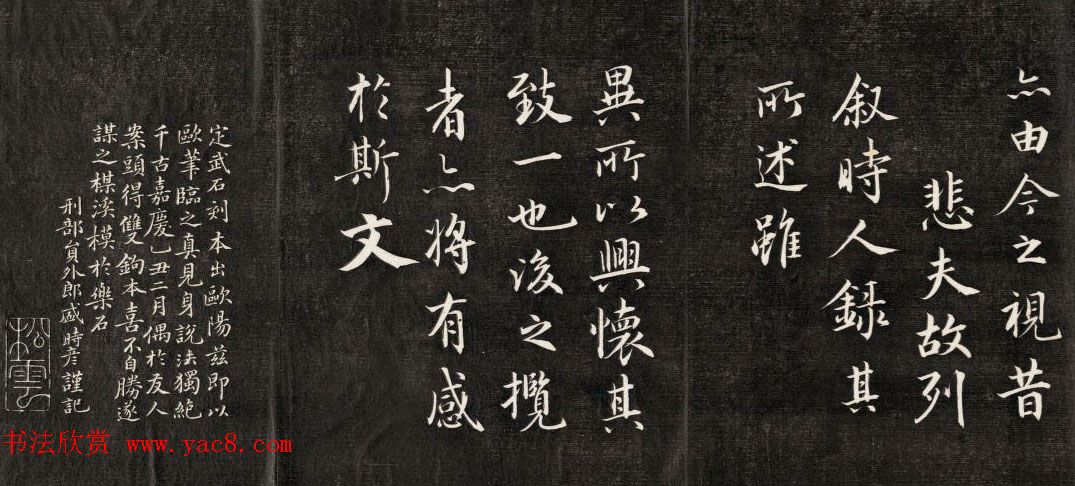 亦由今之視昔
悲夫故列
叙時人錄其
所述雖
異所以興懷其
致一也後之攬
者亦將有感
於斯文
定武石刻本出歐陽兹即以
歐筆臨之真見身說法獨絶
千古嘉慶乙丑二月偶於友人
案頭得雙鉤本喜不自勝遂
謀之楳溪模於樂石
刑部員外郎盛時彦謹記
松雲
书法欣赏 www.yac8.com